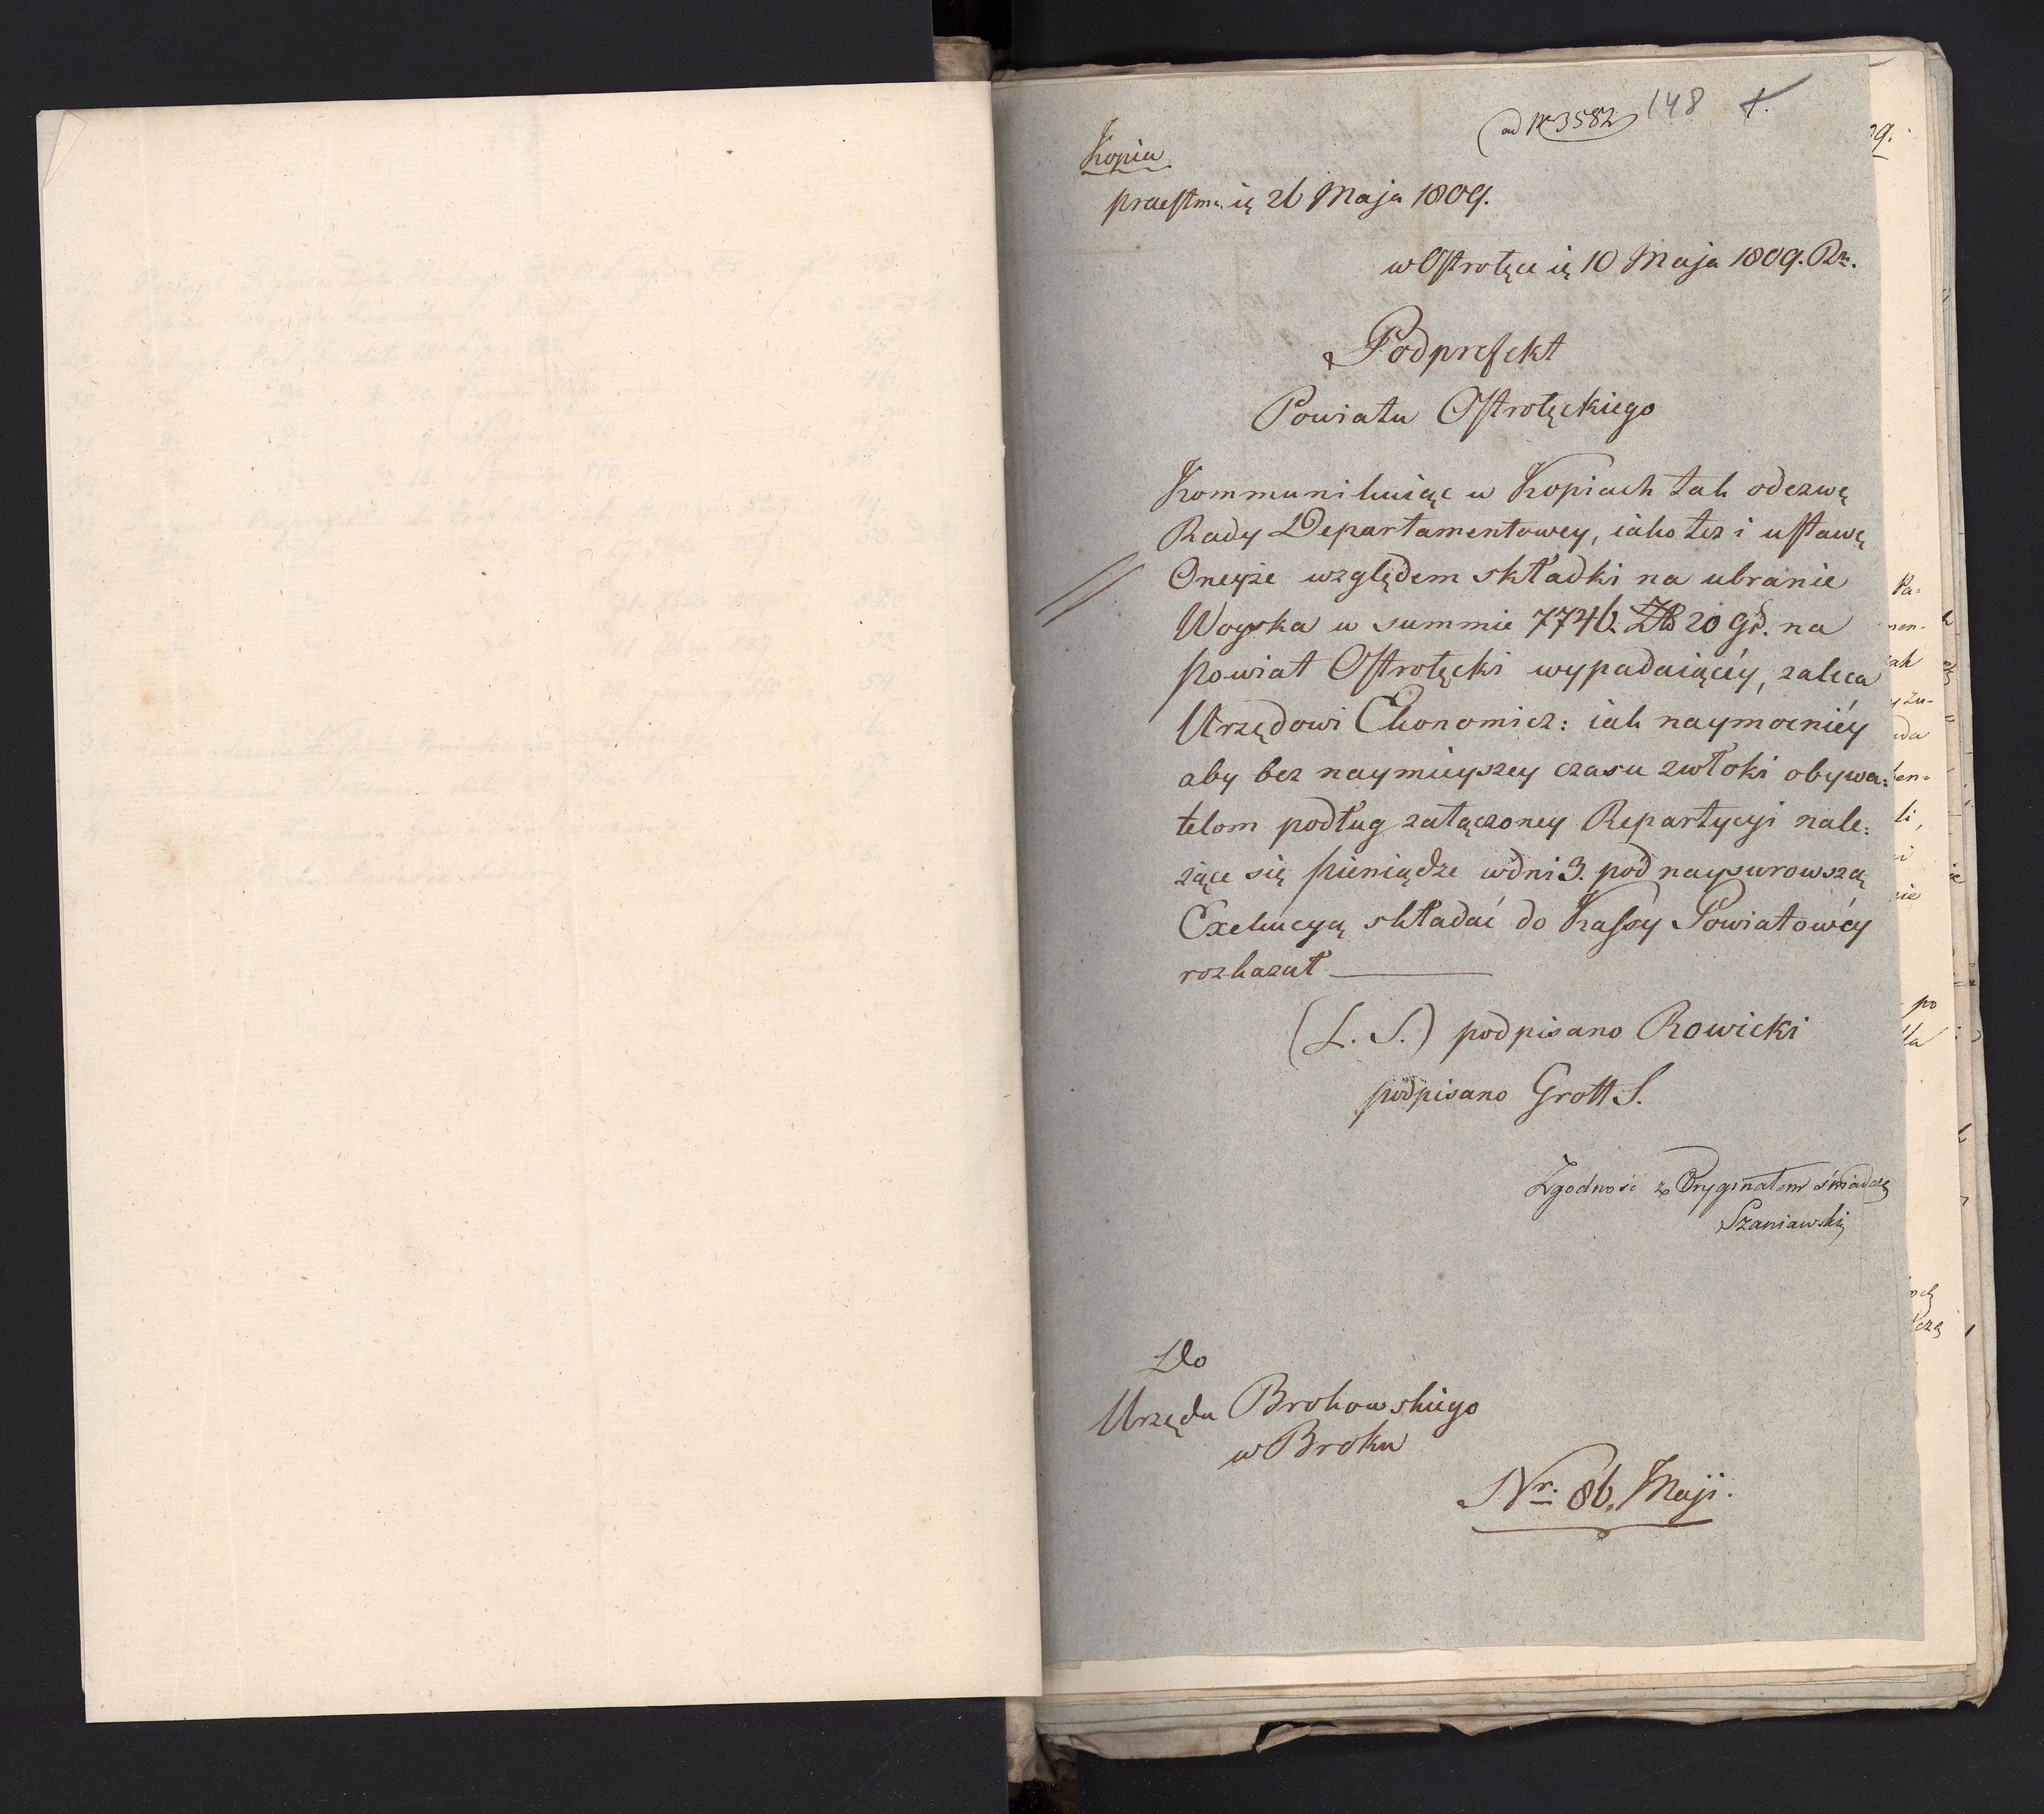 ad Nr 3582 148 1.
Kopia
praestm. ię 26 Maja 1809.
w Ostrołęce ię 10 Maja 1809. Rn.
Podprefekt
Powiatu Ostrołęckiego
Kommunikuiąc w Kopiach tak odezwę
Rady Departamentowey, iako tez i ustawę
Oneyże względem składki na ubranie
Woyska w summie 7746. Złł 20 gr. na
Powiat Ostrołęcki wypadaiącéy, zaleca
Urzędowi Ekonomicz: iak naymocniéy
aby bez naymnieyszey czasu zwłoki obywa:
telom podług załączoney Repartycyi nale:
zące się pieniądze w dni 3. pod naysurowszą
Exekucyą składać do Kassy Powiatowéy
rozkazał
(L. S.) podpisano Rowicki
podpisano Grott S.
Zgodność z Oryginałem świadczę
Szaniawski
Do
Urzędu Brokowskiego
w Broku
Nr. 86. Maji.